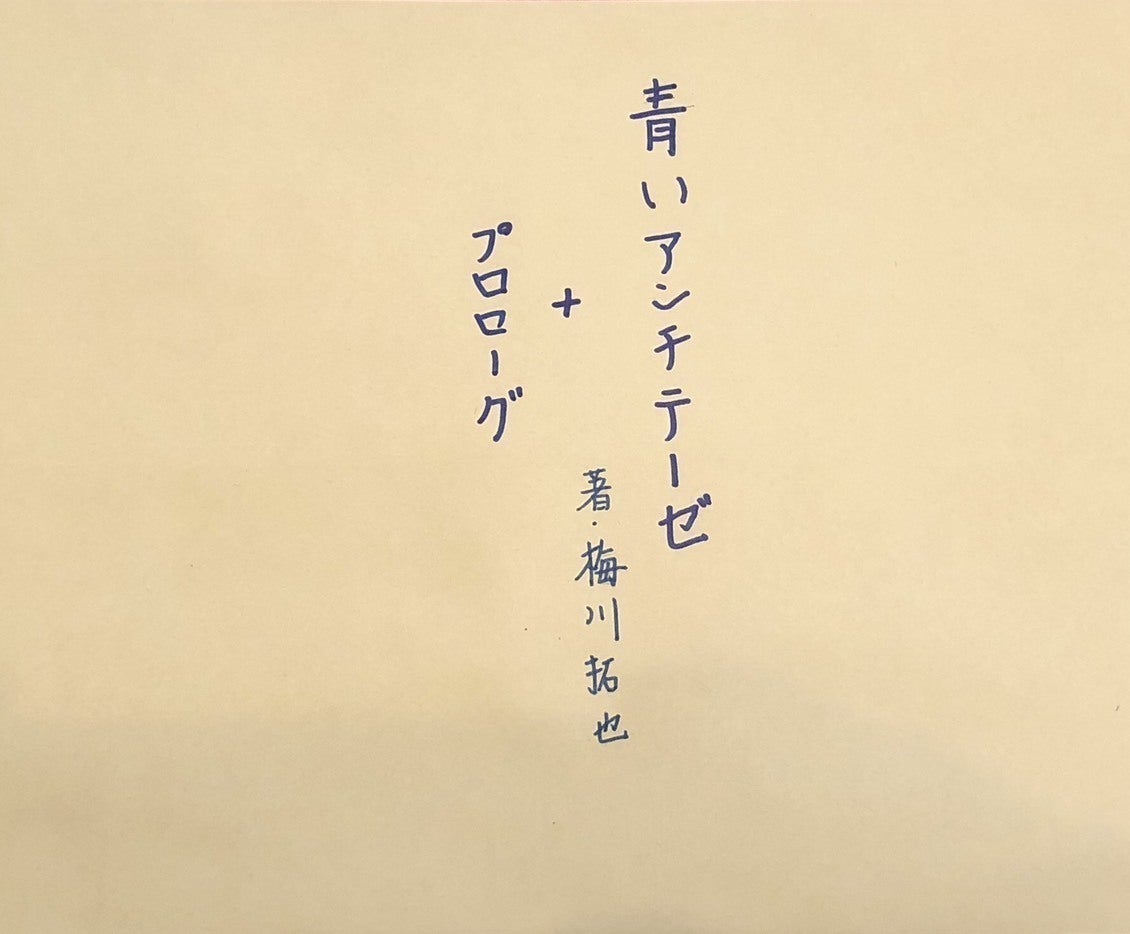 青いアンチテーゼ
+
プロローグ
著・梅川拓也